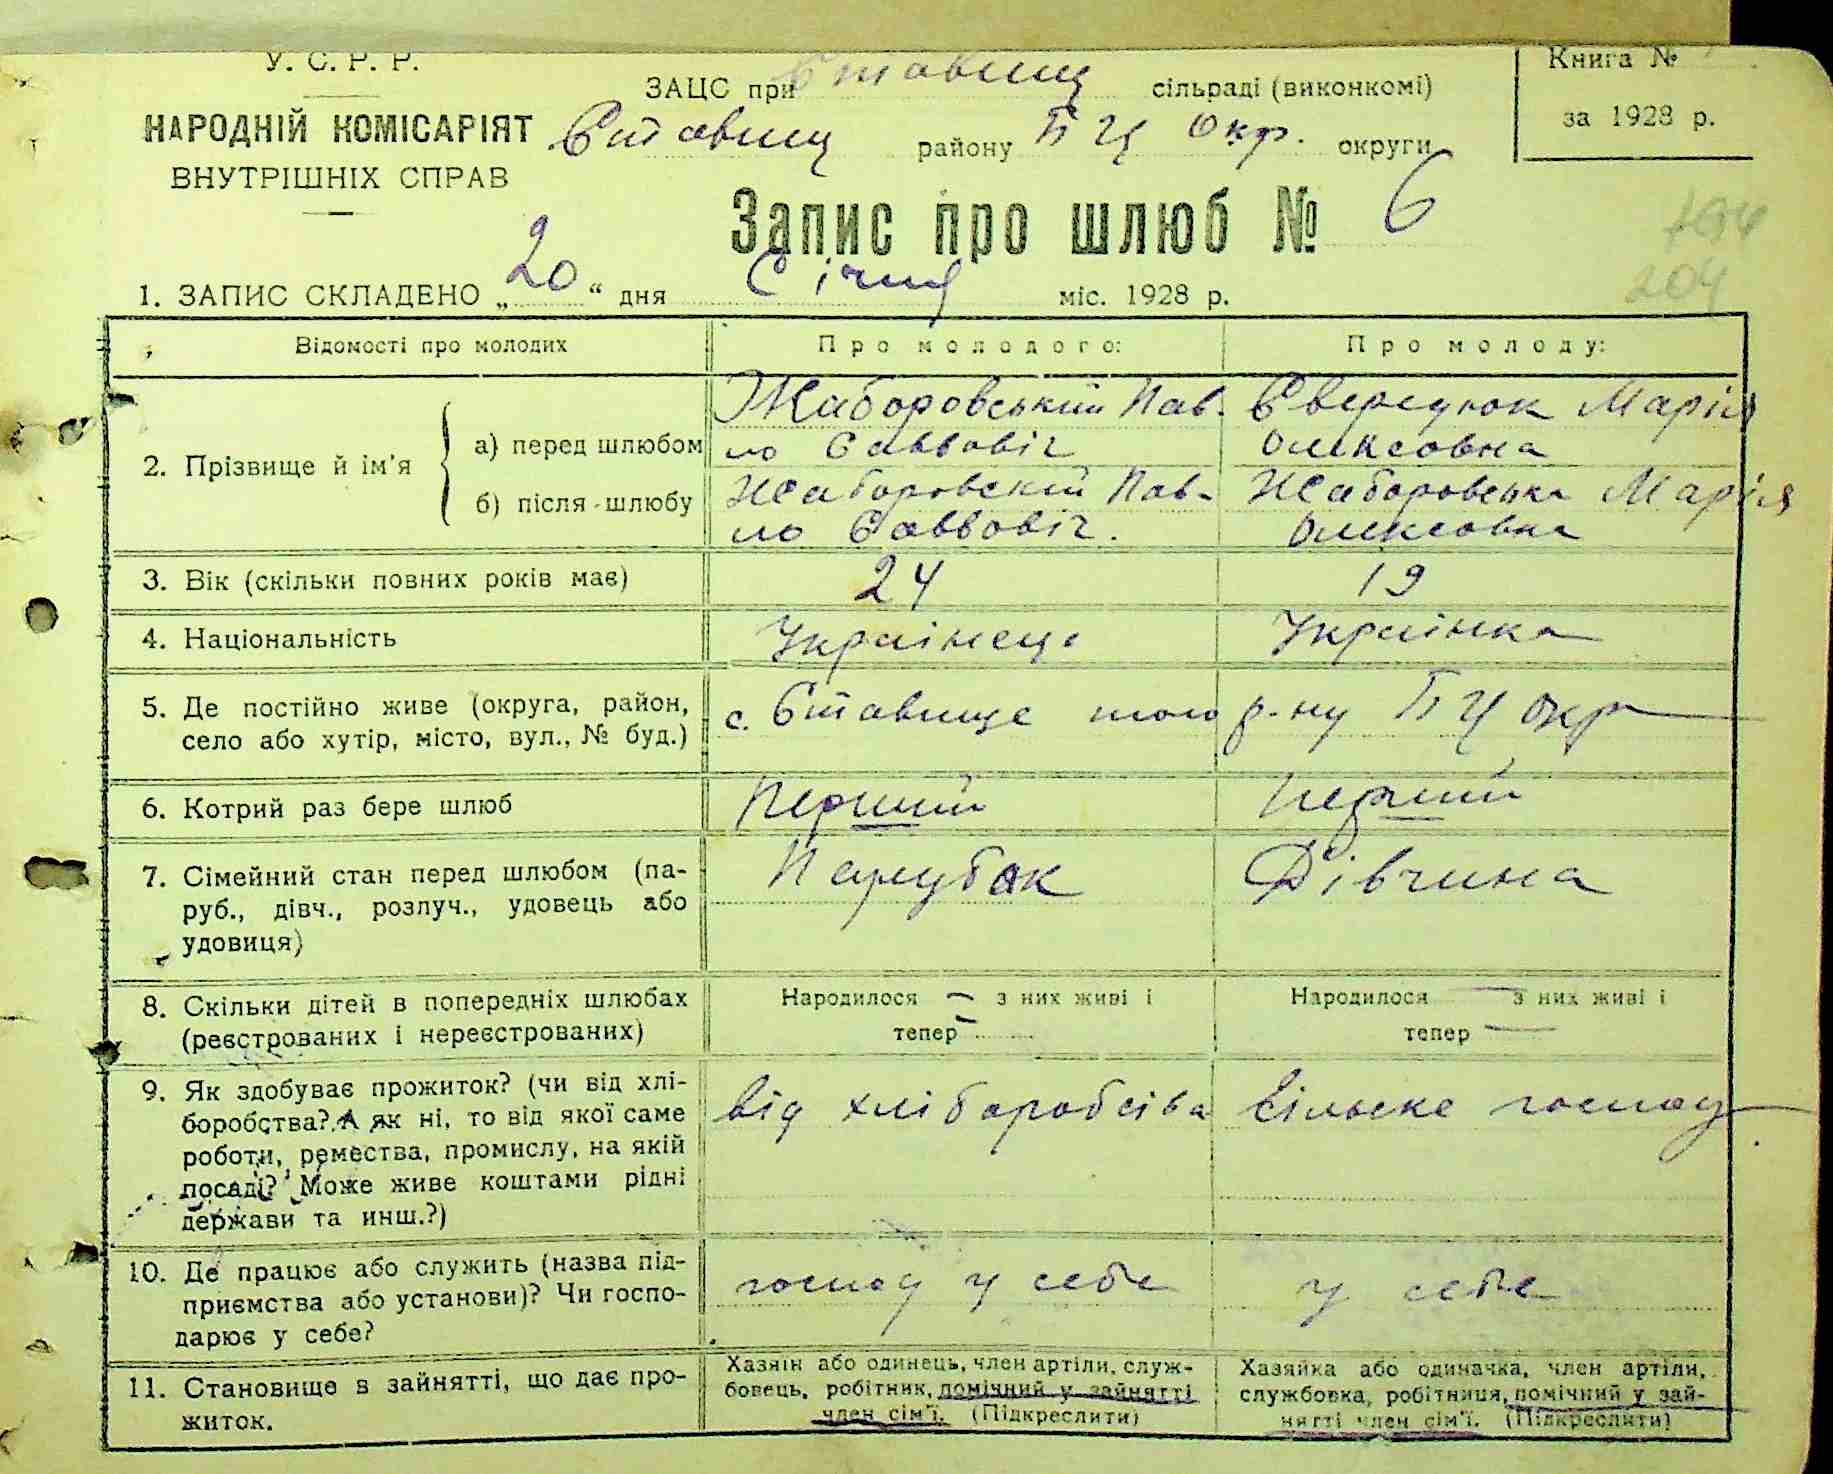 У. С. Р. Р.
НАРОДНІЙ КОМІСАРІЯТ
ВНУТРІШНІХ СПРАВ
ЗАЦС при Ставищ сільраді (виконкомі)
Ставищ району БЦ Окр. округи
Книга №
за 1928 р.
Запис про шлюб № 6
194
204
1. ЗАПИС СКЛАДЕНО „20“ дня Січня міс. 1928 р.
Відомості про молодих
Про молодого:
Про молоду:
2. Прізвище й ім'я
а) перед шлюбом
Жаборовський Пав-
ло Саввовіч
Свередюк Марія
Олексовна
б) після шлюбу
Жаборовскій Пав-
ло Саввовіч.
Жаборовська Марія
Олексовна
3. Вік (скільки повних років має)
24
19
4. Національність
Українець
Українка
5. Де постійно живе (округа, район,
село або хутір, місто, вул., № буд.)
с. Ставище того р-ну БЦ окр
6. Котрий раз бере шлюб
Перший
Перший
7. Сімейний стан перед шлюбом (па-
руб., дівч., розлуч., удовець або
удовиця)
Парубок
Дівчина
8. Скільки дітей в попередніх шлюбах
(реєстрованих і нереєстрованих)
Народилося — з них живі і
тепер —
Народилося — з них живі і
тепер —
9. Як здобуває прожиток? (чи від хлі-
боробства? А як ні, то від якої саме
роботи, ремества, промислу, на якій
посаді? Може живе коштами рідні
держави та инш.?)
від хліборобсіва
Сільске господ
10. Де працює або служить (назва під-
приємства або установи)? Чи госпо-
дарює у себе?
господ у себе
у себе
11. Становище в зайнятті, що дає про-
житок.
Хазяїн або одинець, член артіли, служ-
бовець, робітник, помічний у зайнятті
член сім'ї. (Підкреслити)
Хазяйка або одиначка, член артіли,
службовка, робітниця, помічний у зай-
нятті член сім'ї. (Підкреслити)